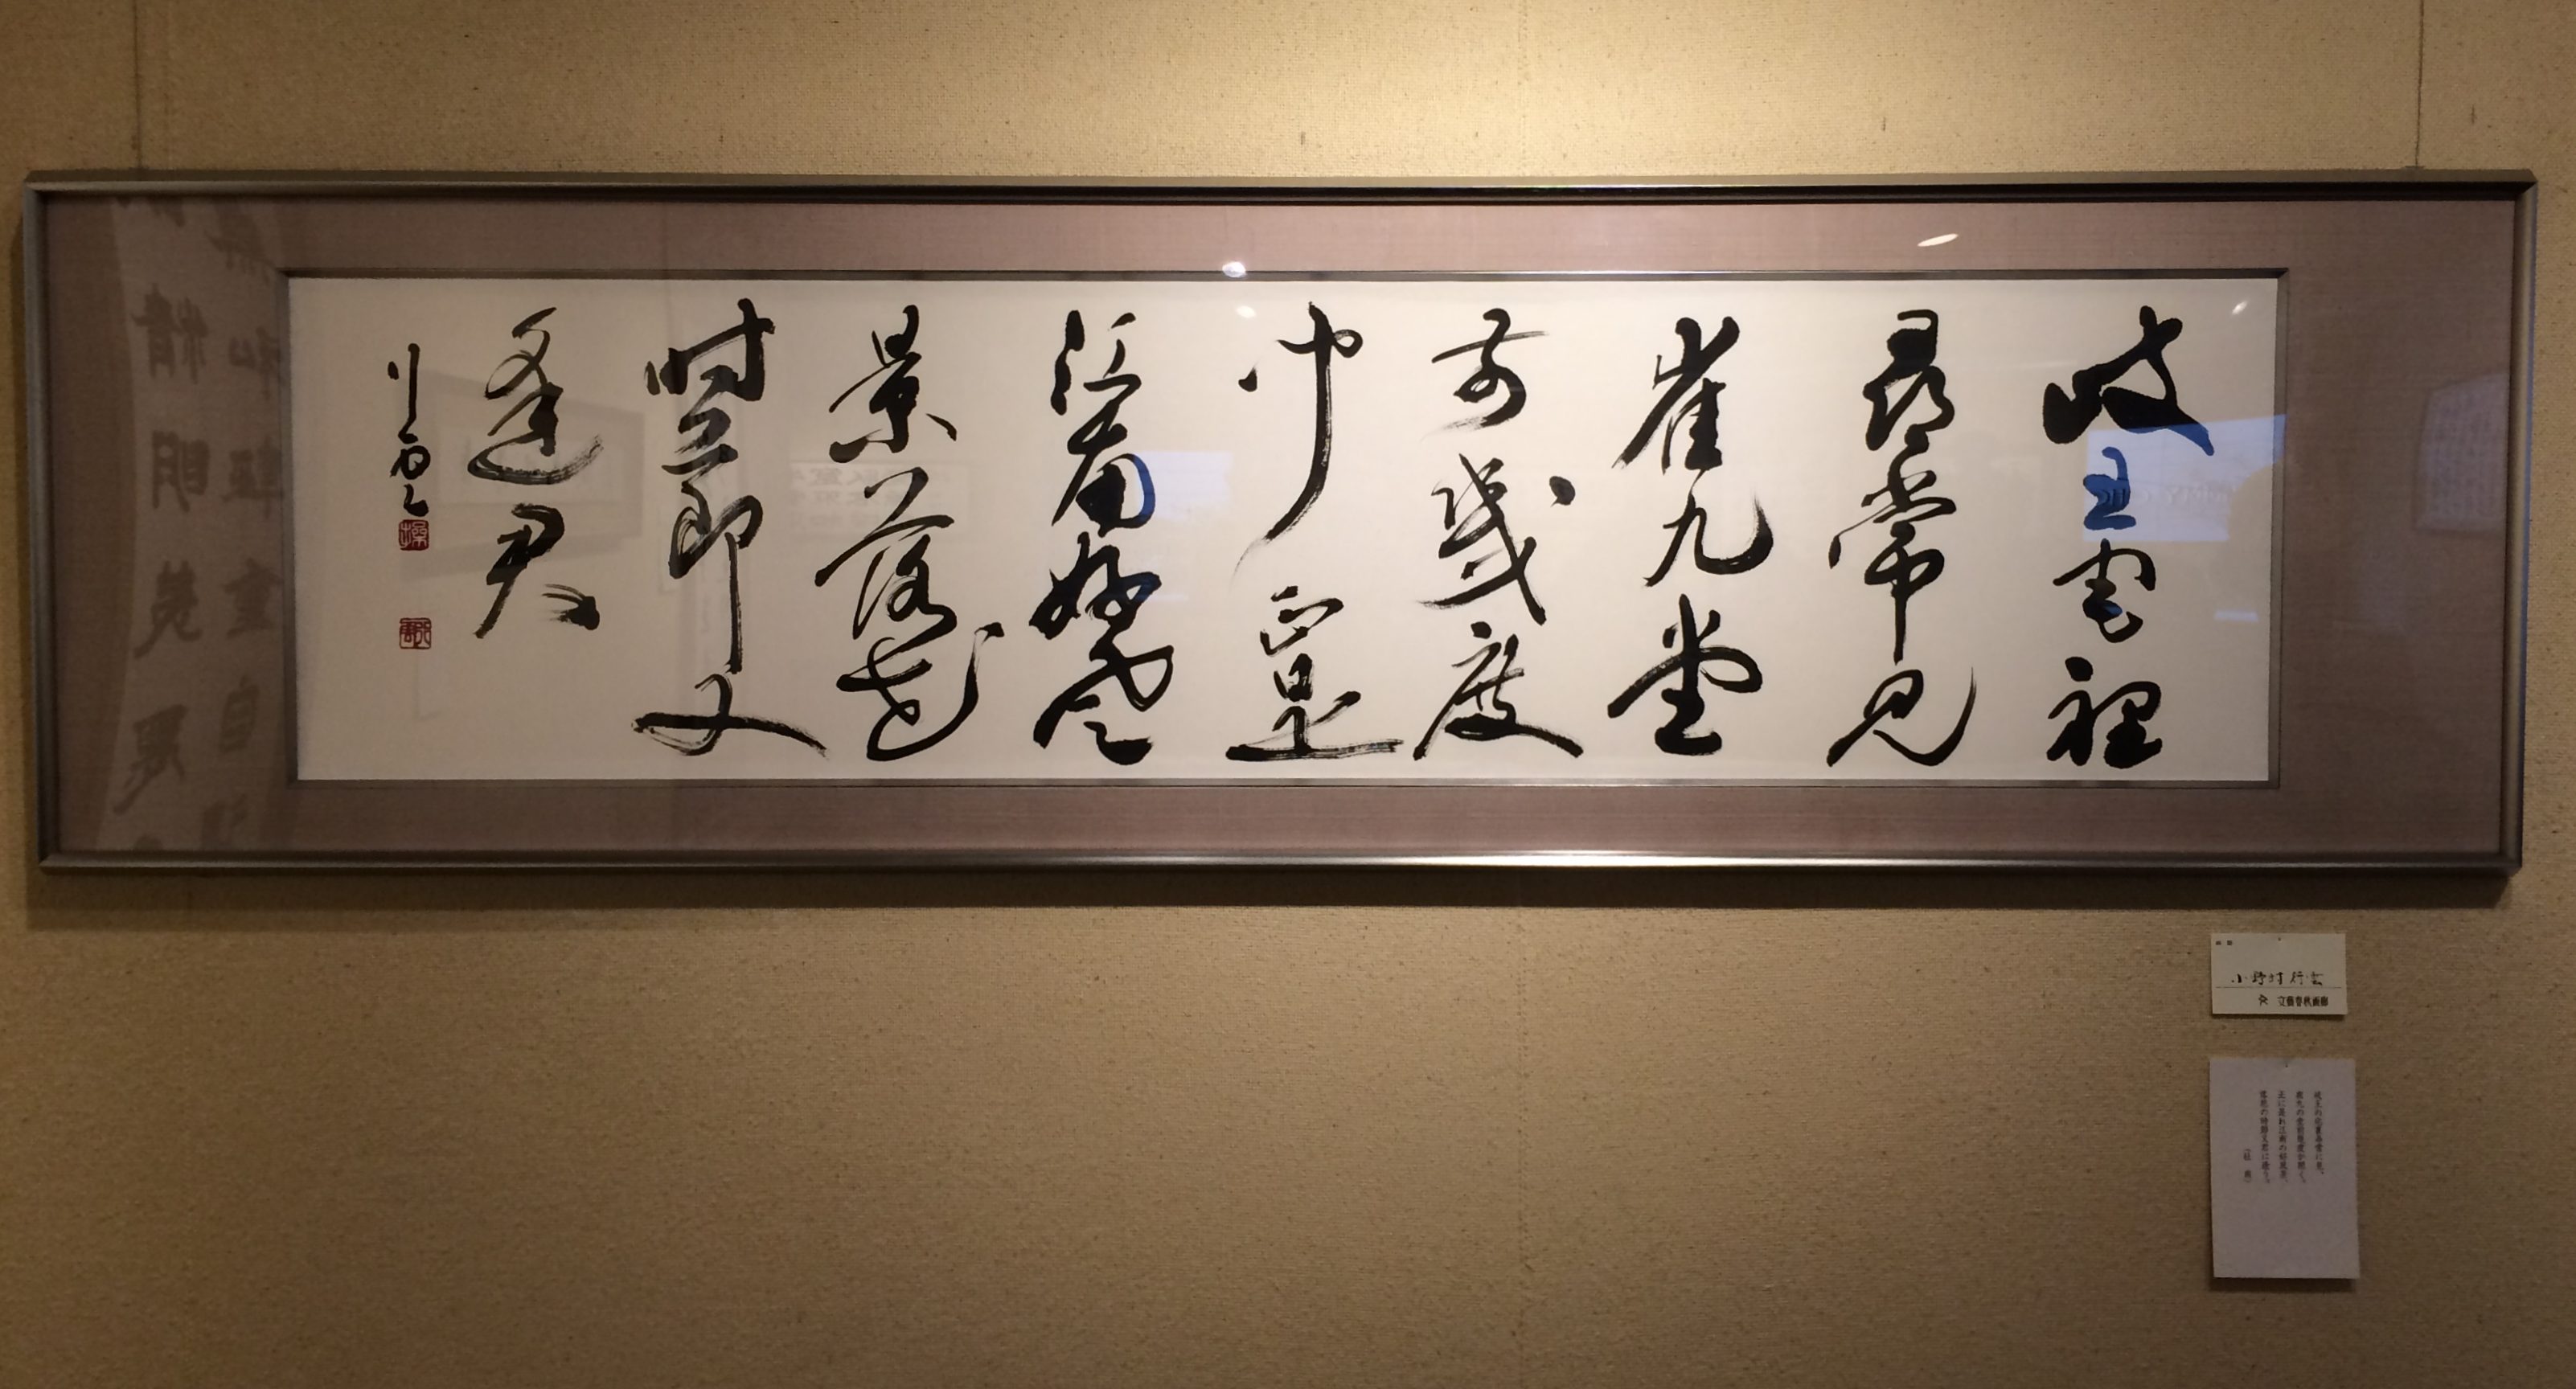 岐王宅裡
尋常見
崔九堂
前幾度
聞正是
江南好風
景落花
時節又
逢君
行雲
小野村行雲
文藝春秋画廊
岐王の宅裏尋常に見、
崔九の堂前幾度か聞く。
正に是れ江南の好風景、
落花の時節又君に逢う。
（杜 甫）